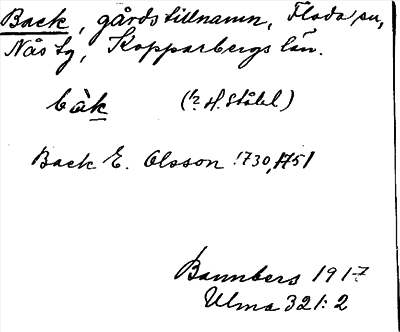 Back, gårdstillnamn, Floda sn,
Nås tg, Kopparbergs län.
bàk (hr H. Ståhl)
Back E. Olsson 1730, 1751
Bannbers 1917
Ulma 321:2